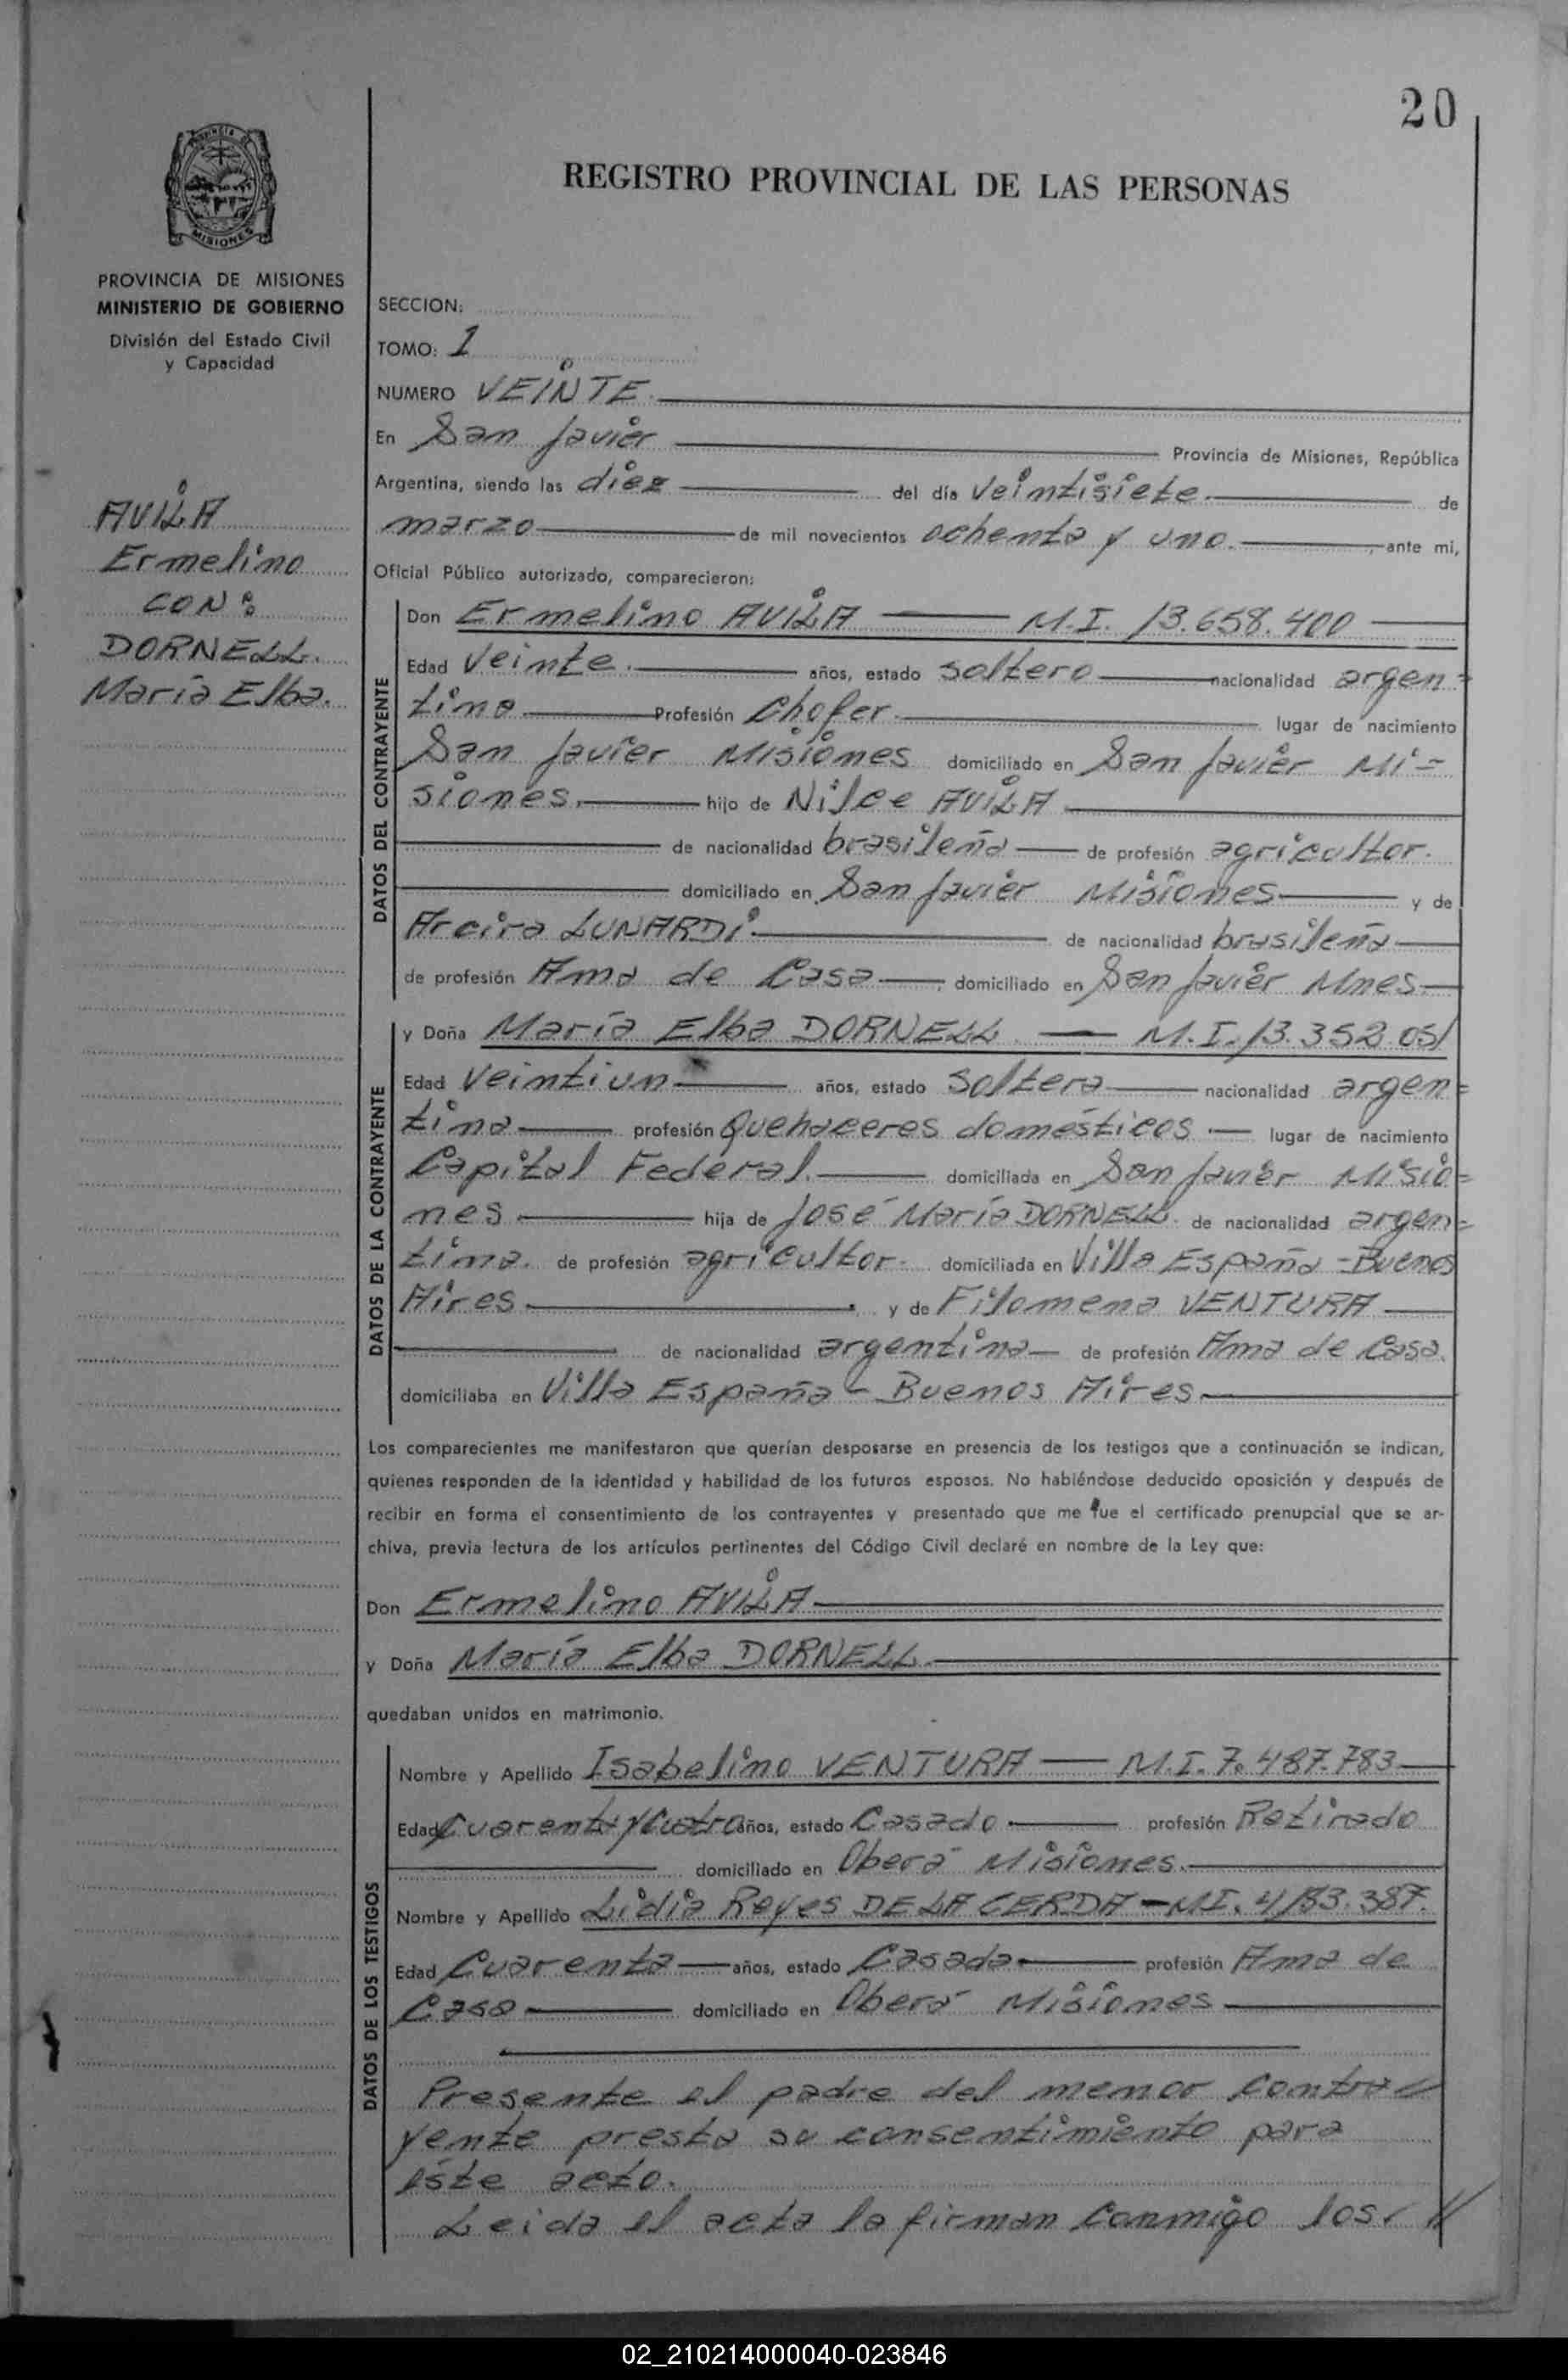 20
REGISTRO PROVINCIAL DE LAS PERSONAS
MISIONES
PROVINCIA DE MISIONES
MINISTERIO DE GOBIERNO
División del Estado Civil
y Capacidad
AVILA
Ermelino
CON:
DORNELL.
María Elba.
SECCION:
TOMO: 1
NUMERO VEINTE.
En San Javier Provincia de Misiones, República
Argentina, siendo las diez del día veintisiete de
marzo de mil novecientos ochenta y uno. ante mi,
Oficial Público autorizado, comparecieron:
DATOS DEL CONTRAYENTE
Don Ermelino AVILA M.I. 13.658.400
Edad veinte. años, estado soltero nacionalidad argen=
tina Profesión Chofer. lugar de nacimiento
San Javier Misiones domiciliado en San Javier Mi=
siones. hijo de Nilce AVILA
de nacionalidad brasileña de profesión agricultor.
domiciliado en San Javier Misiones y de
Arcira LUNARDI. de nacionalidad brasileña
de profesión Ama de Casa domiciliado en San Javier Mnes.
DATOS DE LA CONTRAYENTE
y Doña María Elba DORNELL M.I. 13.352.051
Edad veintiun años, estado soltera nacionalidad argen=
tina profesión Quehaceres domésticos lugar de nacimiento
Capital Federal. domiciliada en San Javier Misio=
nes hija de José María DORNELL. de nacionalidad argen=
tina. de profesión agricultor. domiciliada en Villa España - Buenos
Aires y de Filomena VENTURA
de nacionalidad argentina de profesión Ama de Casa.
domiciliaba en Villa España - Buenos Aires.
Los comparecientes me manifestaron que querían desposarse en presencia de los testigos que a continuación se indican,
quienes responden de la identidad y habilidad de los futuros esposos. No habiéndose deducido oposición y después de
recibir en forma el consentimiento de los contrayentes y presentado que me fue el certificado prenupcial que se ar-
chiva, previa lectura de los artículos pertinentes del Código Civil declaré en nombre de la Ley que:
Don Ermelino AVILA
y Doña María Elba DORNELL.
quedaban unidos en matrimonio.
DATOS DE LOS TESTIGOS
Nombre y Apellido Isabelino VENTURA M.I. 7.487.783
Edad Cuarenta y Cuatro años, estado Casado profesión Retirado
domiciliado en Oberá Misiones.
Nombre y Apellido Lidia Reyes DE LA CERDA - MI.
Edad Cuarenta años, estado Casada profesión Ama de
Casa domiciliado en Oberá Misiones
Presente el padre del menor contra
yente presta su consentimiento para
éste acto.
Leida el acta la firman conmigo los //
02_210214000040-023846